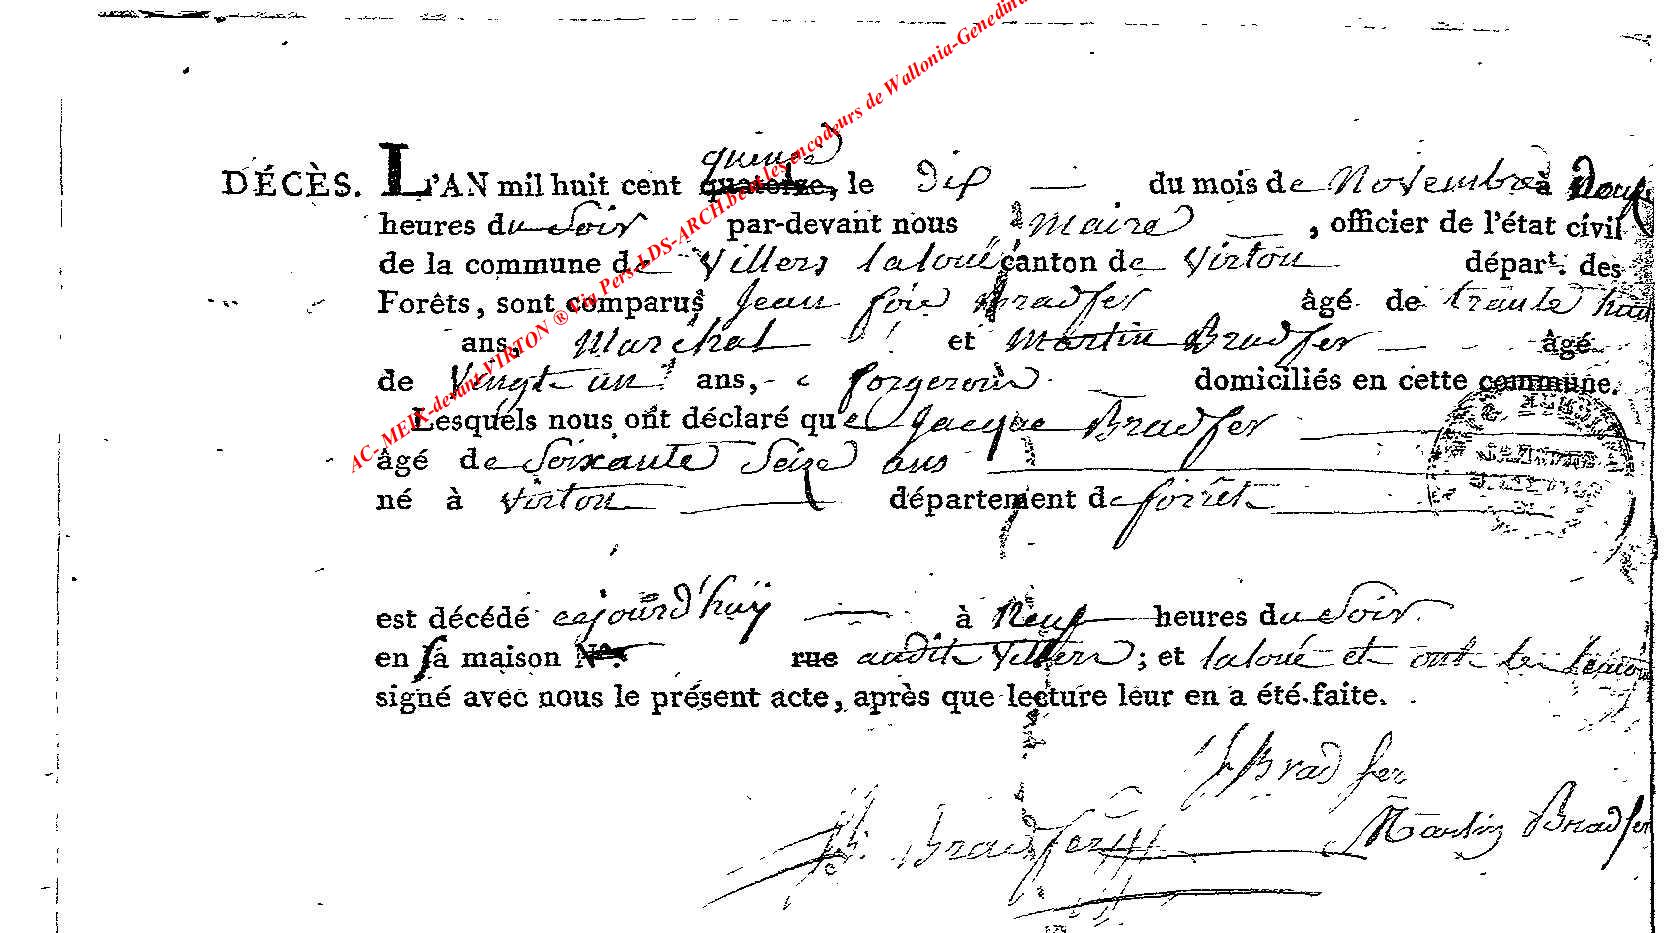 AC_MEIX-devant-VIRTON ® Via Pers-LDS-ARCH.be et les encodeurs de Wallonia-Genedina
quinze
DÉCÈS. L'AN mil huit cent quatorze, le Dix du mois de Novembre à neuf
heures du Soir par-devant nous maire, officier de l'état civil
de la commune de Villers laloué canton de Virton départ. des
Forêts, sont comparus Jean Bradfer âgé de trante huit
ans, Marchal et Martin Bradfer âgé
de Vingt un ans, forgeron domiciliés en cette commune.
Lesquels nous ont déclaré que Jacque Bradfer
âgé de Soixante Seize ans
né à Virton département de forrêt
est décédé cejourd'huÿ à Neuf heures du Soir
en sa maison N°. rue audit Villers; et laloué et ont les témoins
signé avec nous le présent acte, après que lecture leur en a été faite.
Bradfer
Bradfer Martin Bradfer